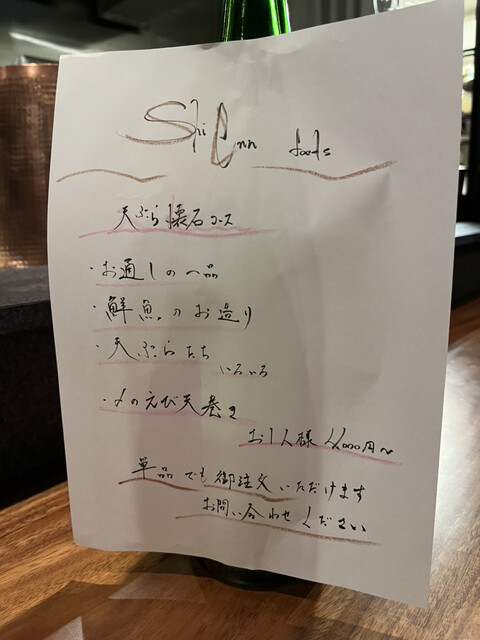 Shi Enn foods
天ぷら懐石コース
・お通しの一品
・鮮魚のお造り
・天ぷらたち
いろいろ
・〆のえび天巻き
お1人様 4,000円〜
単品でも御注文いただけます
お問い合わせください